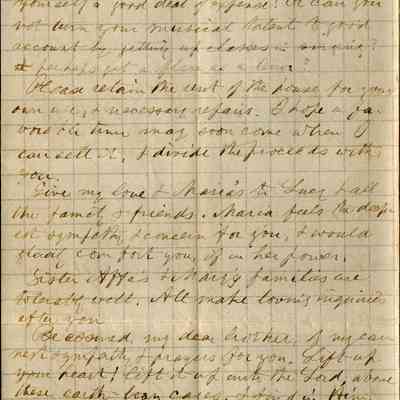 yourself a good deal of expense? Or can you
not turn your musical talent to good
account by getting up classes in singing?
or perhaps get a place as a
Please retain the rent of the house for your
own use, & necessary repairs. I hope a fa-
vorable time may soon come when I
can sell it, & divide the proceeds with
you.
Give my love & Maria's to Lucy & all
the family & friends. Maria feels the deep-
est sympathy & concern for you, & would
glad comfort you, if in her power.
Sister & Mary's families are
tolerably well. All make loving inquiries
after you
Be assured, my dear brother, of my ear-
nest sympathy & prayers for you. Lift up
your heart! Lift it up unto the Lord, above
these earth-born cares, in Him